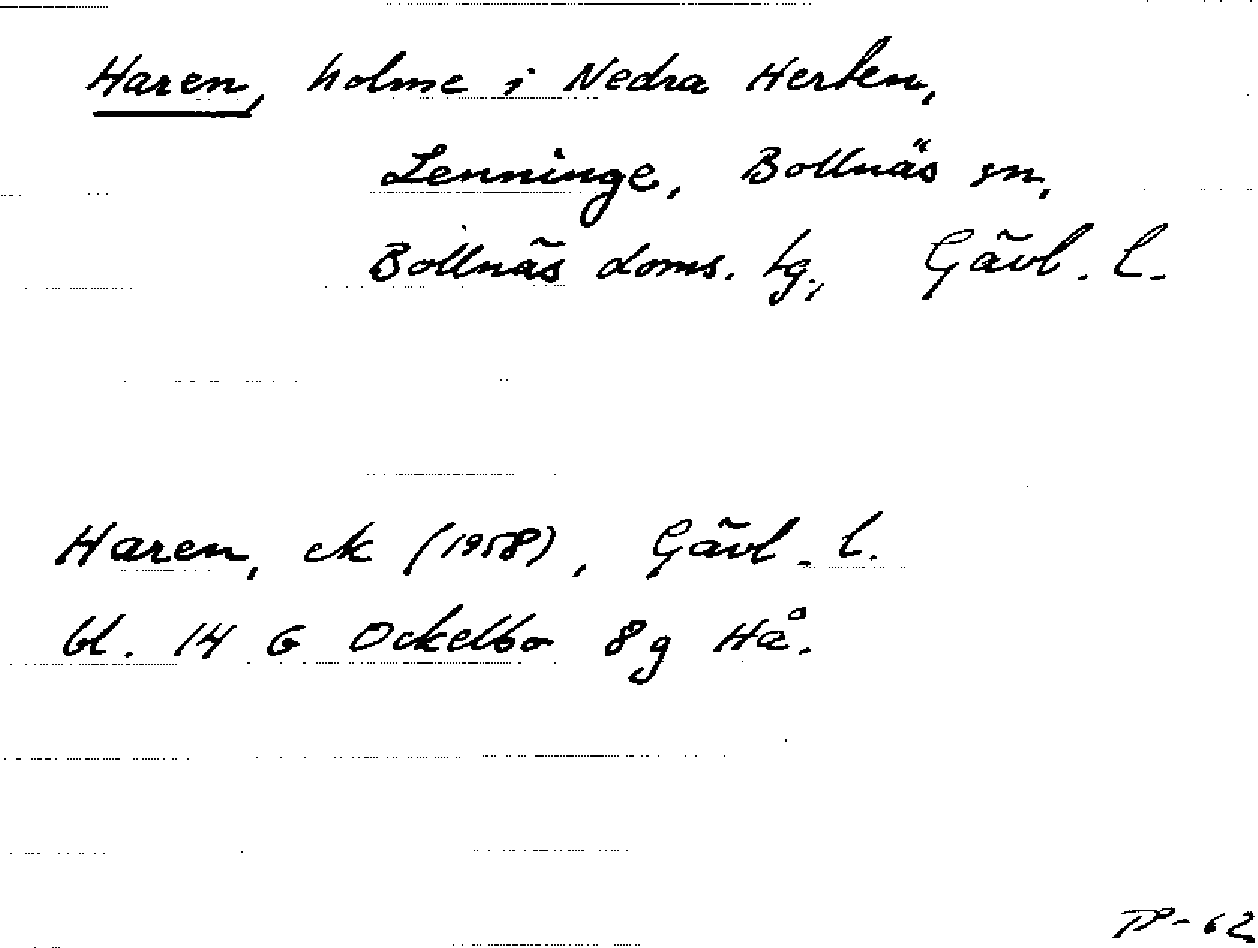 Haren, holme i Nedra Herten,
Lenninge, Bollnäs sn,
Bollnäs doms. tg, Gävl. l.
Haren, ek (1958), Gävl. l.
bl. 14 G Ockelbo 8g Hå.
TP-62